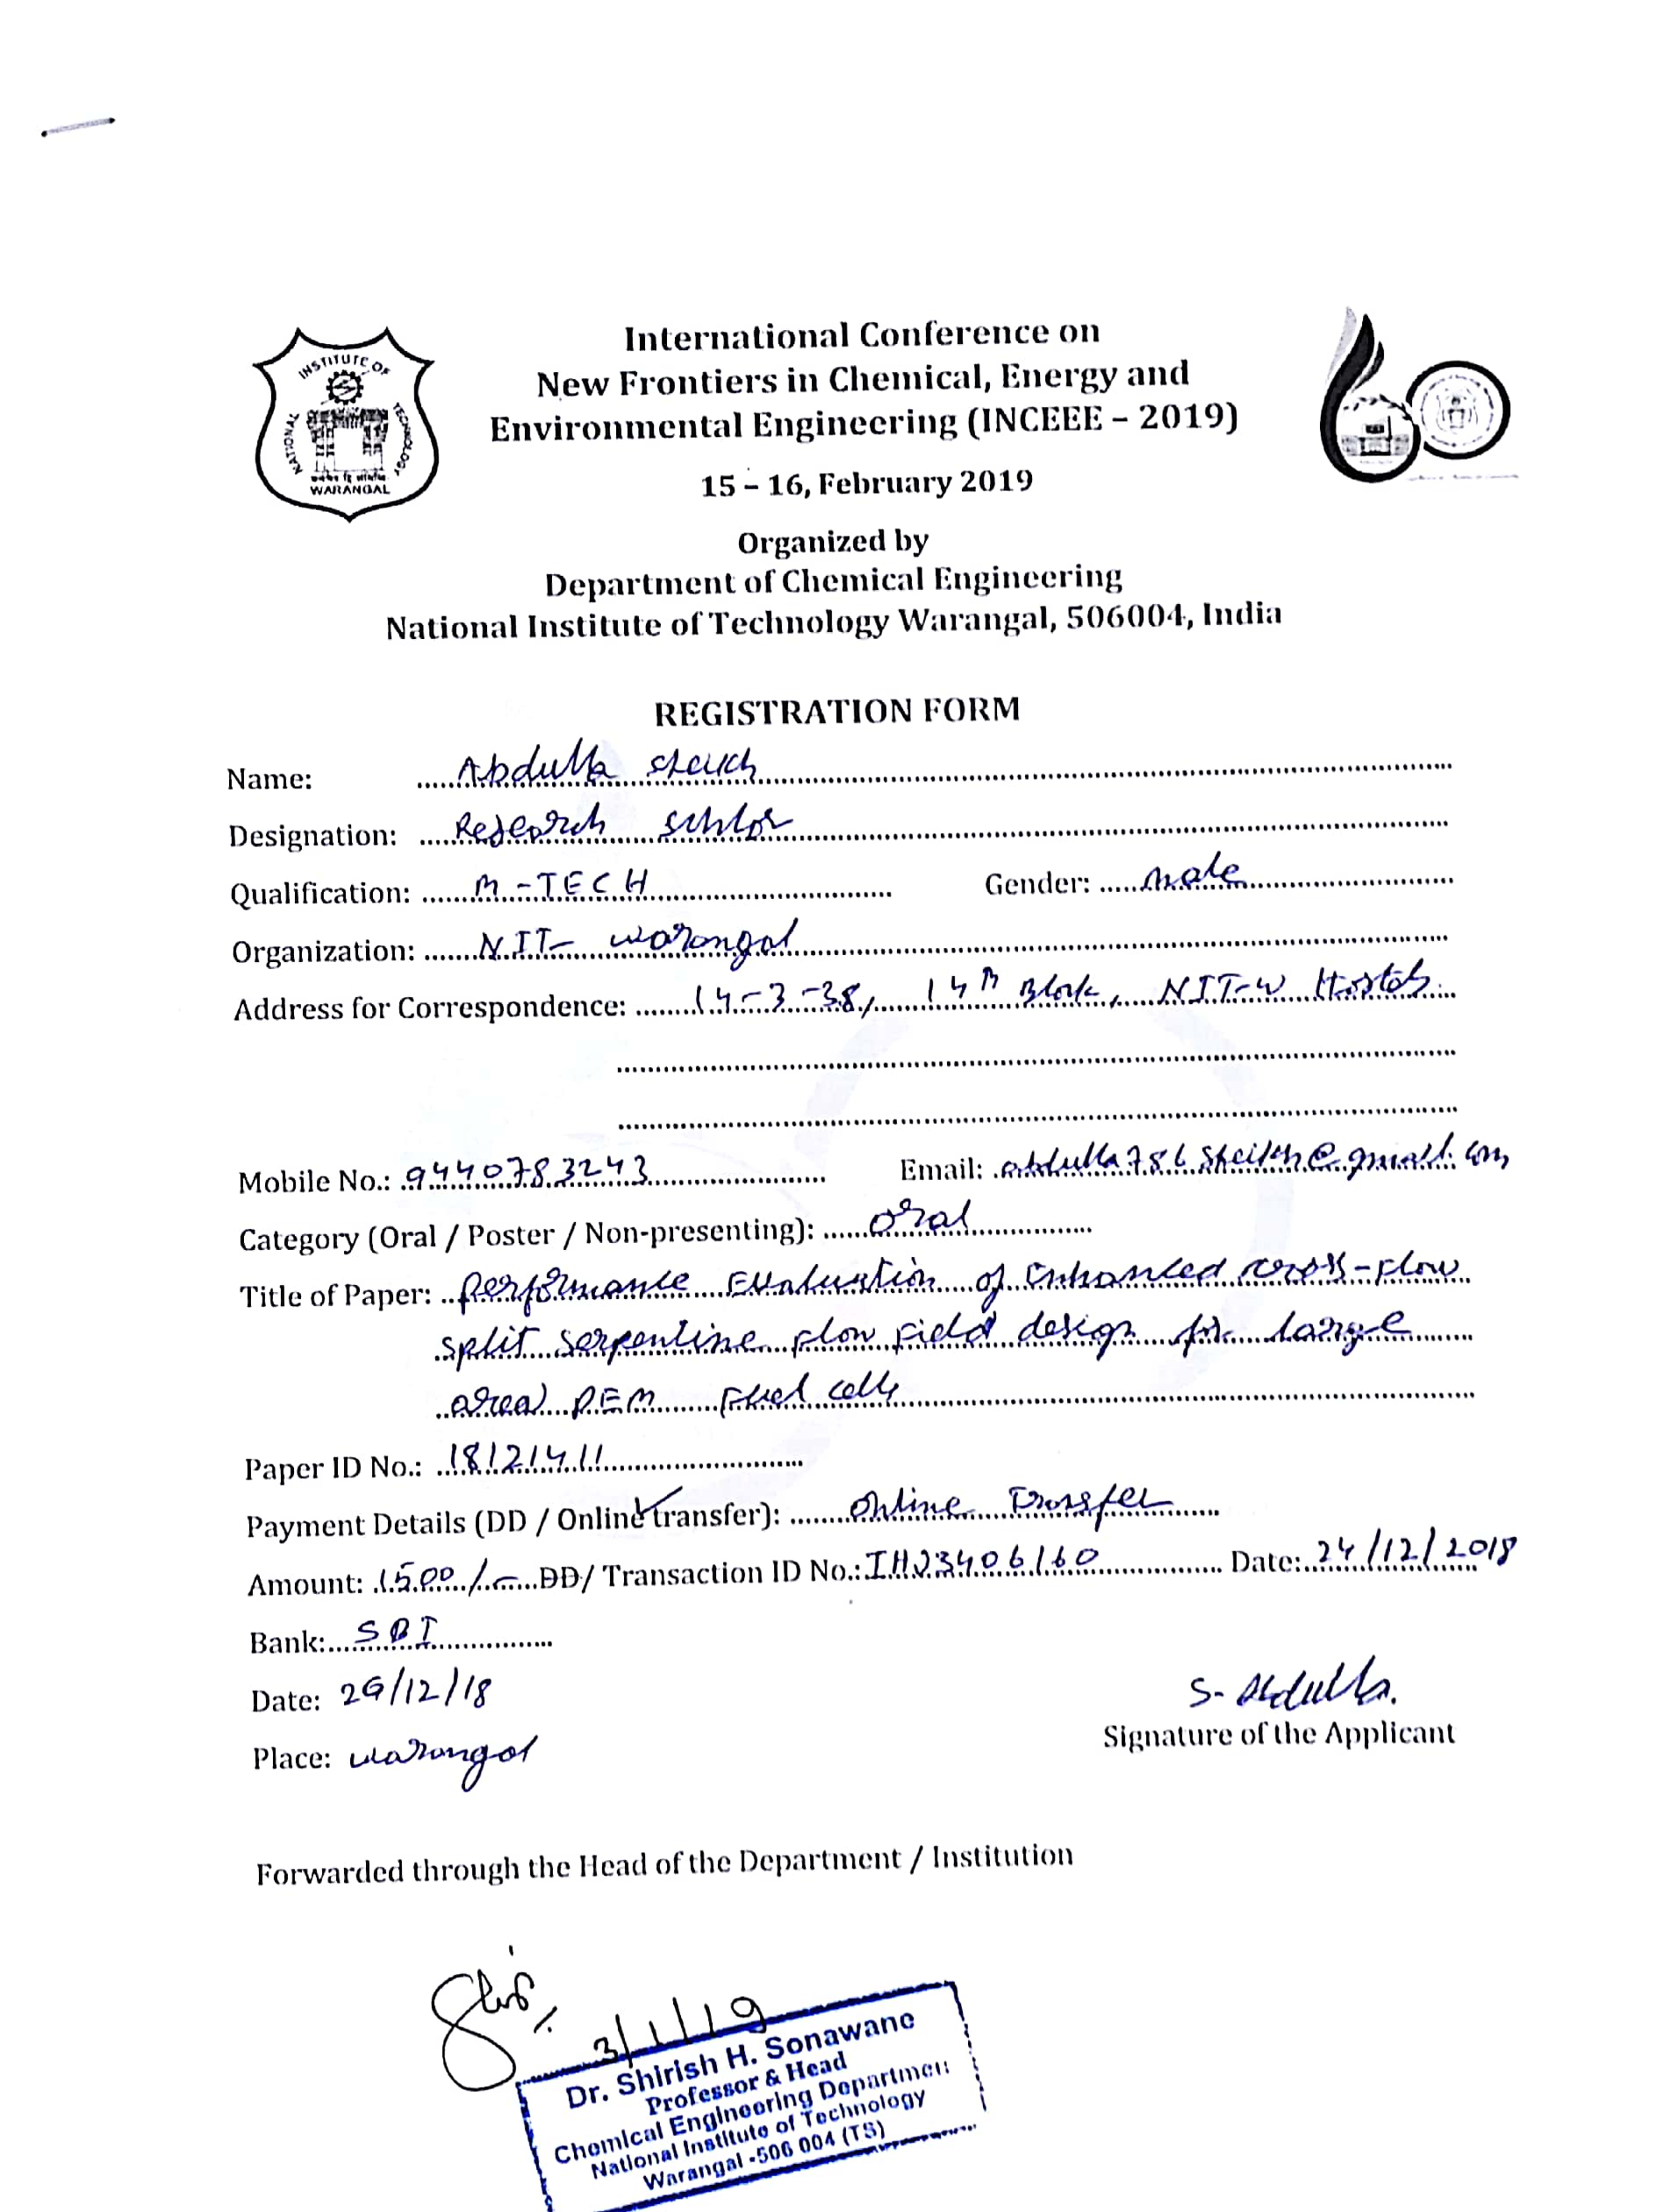 INSTITUTE OF
NATIONAL
TECHNOLOGY
WARANGAL
International Conference on
New Frontiers in Chemical, Energy and
Environmental Engineering (INCEEE – 2019)
15 – 16, February 2019
Organized by
Department of Chemical Engineering
National Institute of Technology Warangal, 506004, India
REGISTRATION FORM
Name: Abdulla Sheikh
Designation: Research
Qualification: M-TECH Gender: male
Organization: NIT- Warangal
Address for Correspondence: 14-3-38, 14th Block, NIT-W Hostels
Mobile No.: 9440783243 Email: abdulla786sheikh@gmail.com
Category (Oral / Poster / Non-presenting): oral
Title of Paper: Performance Evaluation of Enhanced cross-flow
split serpentine flow field design for large
area PEM Fuel cells
Paper ID No.: 18121411
Payment Details (DD / Online transfer): Online Transfer
Amount: 1500/- DD/ Transaction ID No.: Date: 24/12/2018
Bank: SBI
Date: /12/18
S. Abdulla.
Signature of the Applicant
Place: Warangal
Forwarded through the Head of the Department / Institution
3/1/19
Dr. Shirish H. Sonawane
Professor & Head
Chemical Engineering Department
National Institute of Technology
Warangal -506 004 (TS)